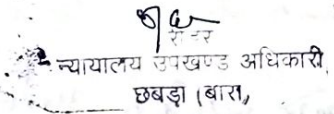 न्यायालय उपखण्ड अधिकारी,
छबड़ा (बारा,